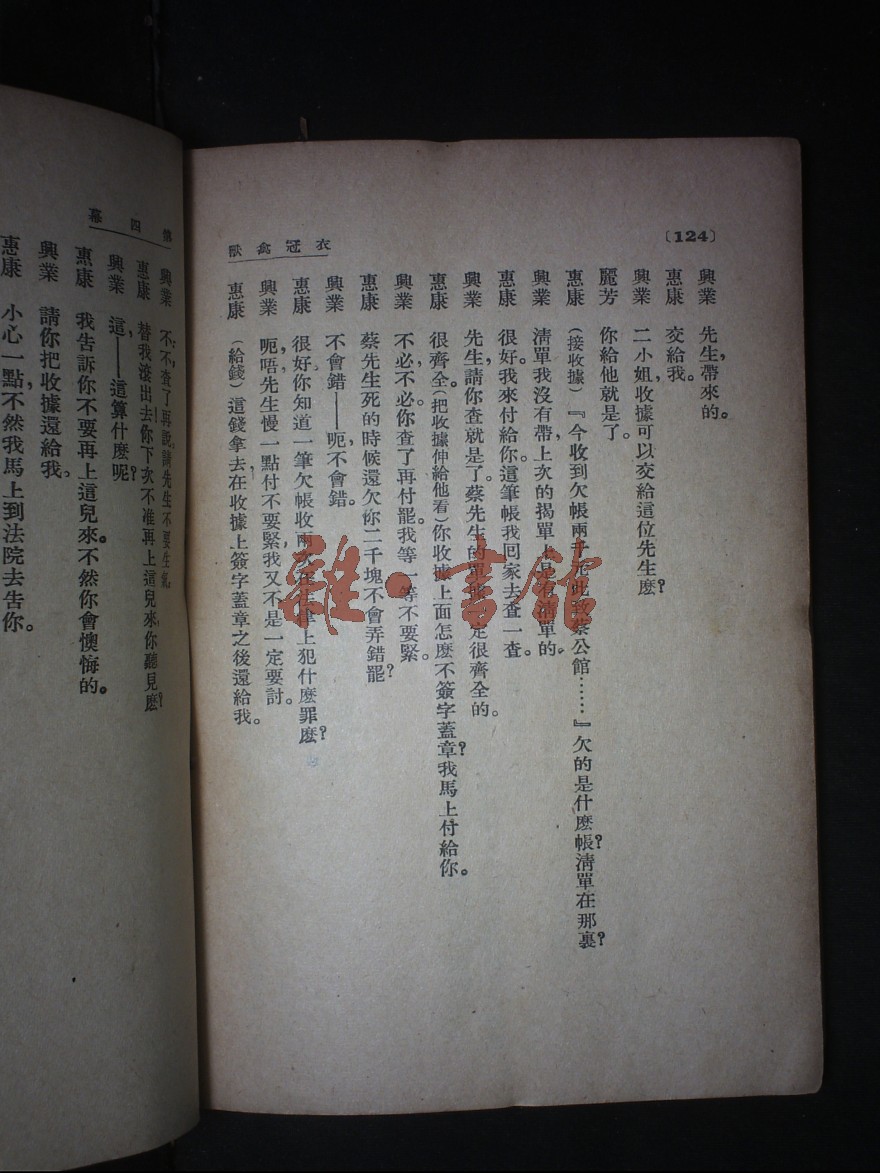 〔124〕
衣冠禽獸
興業　先生，帶來的。
惠康　交給我。
興業　二小姐，收據可以交給這位先生麽？
麗芳　你給他就是了。
惠康　（接收據）『今收到欠帳兩千元此致蔡公館……』欠的是什麽帳？清單在那裏？
興業　清單我沒有帶，上次的揭單上是有清單的。
惠康　很好。我來付給你。這筆帳我回家去查一查。
興業　先生，請你查就是了。蔡先生的單據一定很齊全的。
惠康　很齊全。（把收據伸給他看）你收據上面怎麽不簽字蓋章？我馬上付給你。
興業　不必，不必。你查了再付罷。我等一等不要緊。
惠康　蔡先生死的時候還欠你二千塊不會弄錯罷？
興業　不會錯——呃，不會錯。
惠康　很好，你知道一筆欠帳收兩次在法律上犯什麽罪麽？
興業　呃，唔，先生慢一點付不要緊，我又不是一定要討。
惠康　（給錢）這錢拿去，在收據上簽字蓋章之後還給我。
第四幕
興業　不，不，查了再說。請先生不要生氣。
惠康　替我滾出去！你下次不准再上這兒來，你聽見麽？
興業　這，——這算什麽呢？
惠康　我告訴你不要再上這兒來。不然你會懊悔的。
興業　請你把收據還給我。
惠康　小心一點，不然我馬上到法院去告你。
雜·書館